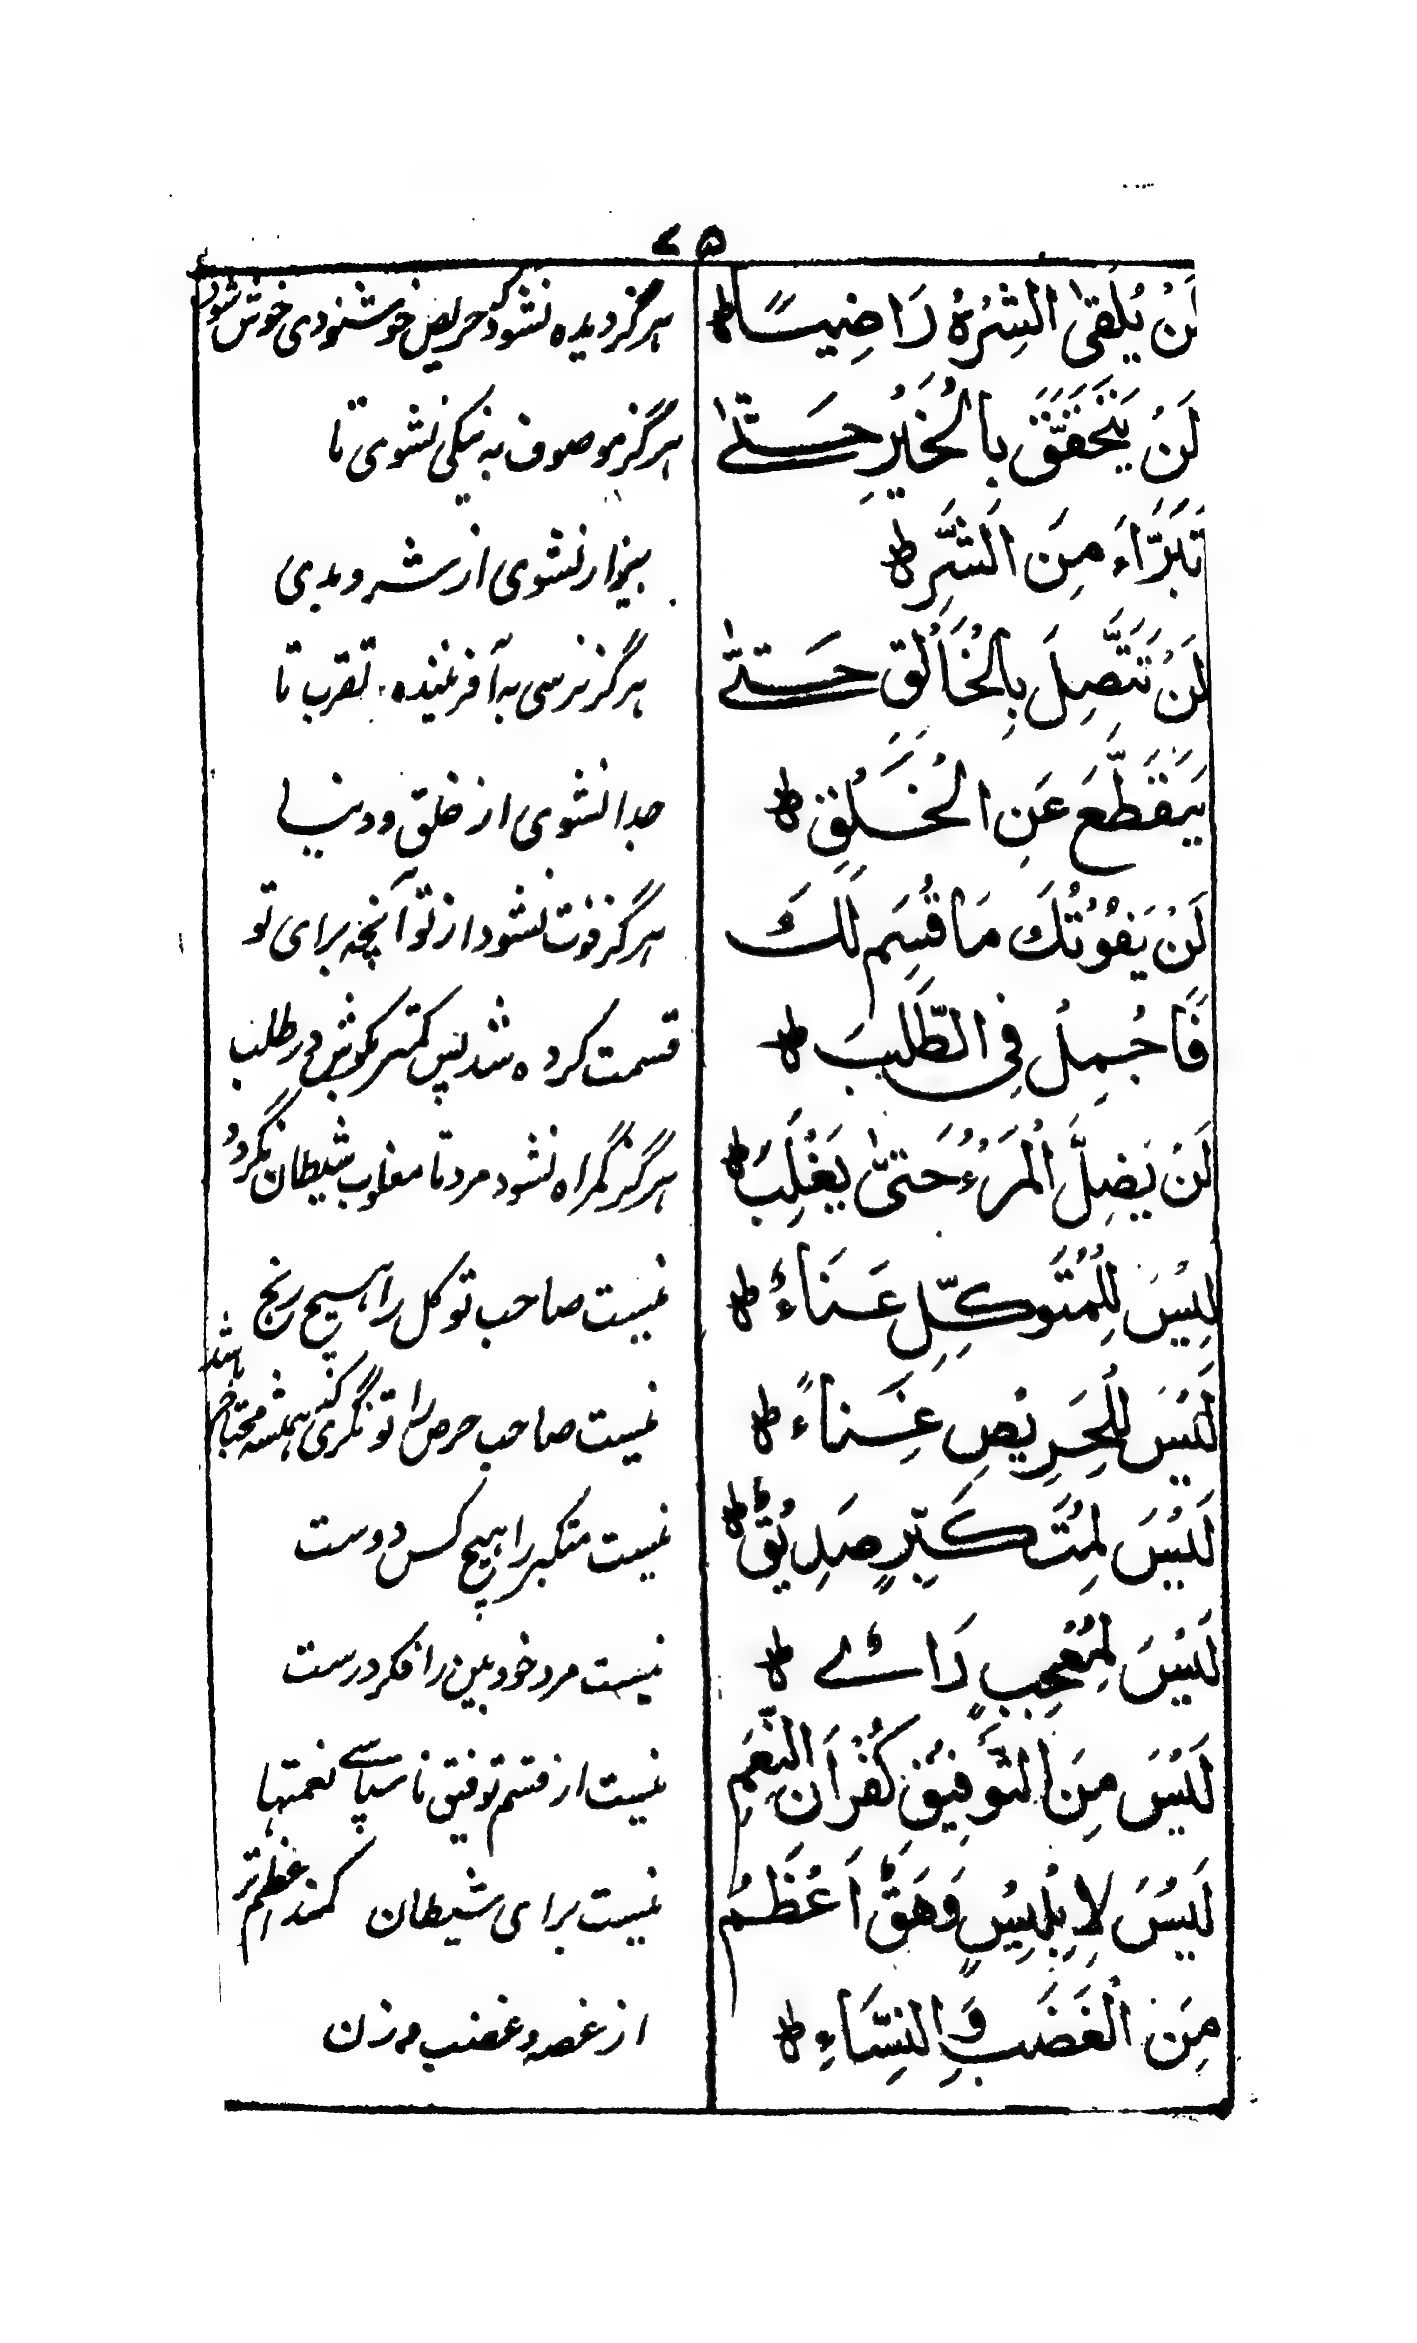 ٧٥
لَنْ يُلْقىٰ الشِرُهُ رَاضِيًا ط
هرگز دیده نشود که حریص خوشنودی خوش شود
لَنْ يَتَحَقَّقَ بالْخَيْرِ حَتّىٰ
هرگز موصوف به نیکی نشوی تا
تَبَرَّاءَ مِنَ الشَّرِ ط
بیزار نشوی از شر و بدی
لَنْ تَتَّصِلَ بِالْخَالِقِ حَتّىٰ
هرگز نرسی به آفریننده تقرب تا
يَنقَطَّعَ عَنِ الْخَلْقِ ط
جدا نشوی از خلق و دنیا
لَنْ يَفُوْتُكَ مَا قُسِمَ لَكَ
هرگز فوت نشود از تو آنچه برای تو
فَاَجْمِلْ فِي الطَّلَبَ ط
قسمت کرده شد پس کمتر بکوش در طلب
لَنْ يَضِلَّ الْمَرْءُ حَتىّٰ يَغْلِبَ ط
هرگز گمراه نشود مرد تا مغلوب شیطان نگردد
لَيْسَ لِلْمُتَوَكِّلِ عَنَاءٌ ط
نیست صاحب توکل را هیچ رنج
لَيْسَ لِلْحَرِيْصِ غِنَاءً ط
نیست صاحب حرص را تونگری که همیشه محتاج باشد
لَيْسَ لِمُتَكَبِّرٍ صَدِيْقٌ ط
نیست متکبر را هیچ کس دوست
لَيْسَ لِمُعْجِبٍ رَائے ط
نیست مرد خود بین را فکر درست
لَيْسَ مِنَ التَّوْفِيْقِ كُفْرَانُ النِّعَمِ
نیست از قسم توفیق ناسپاسے نعمتها
لَيْسَ لِاِبْلِيْسٍ وَهَقٌ اَعْظَمُ
نیست برای شیطان کمند اعظم تر
مِنَ الْغَضَبِ وَ النِسَّاءِ ط
از غصه و غضب و زن